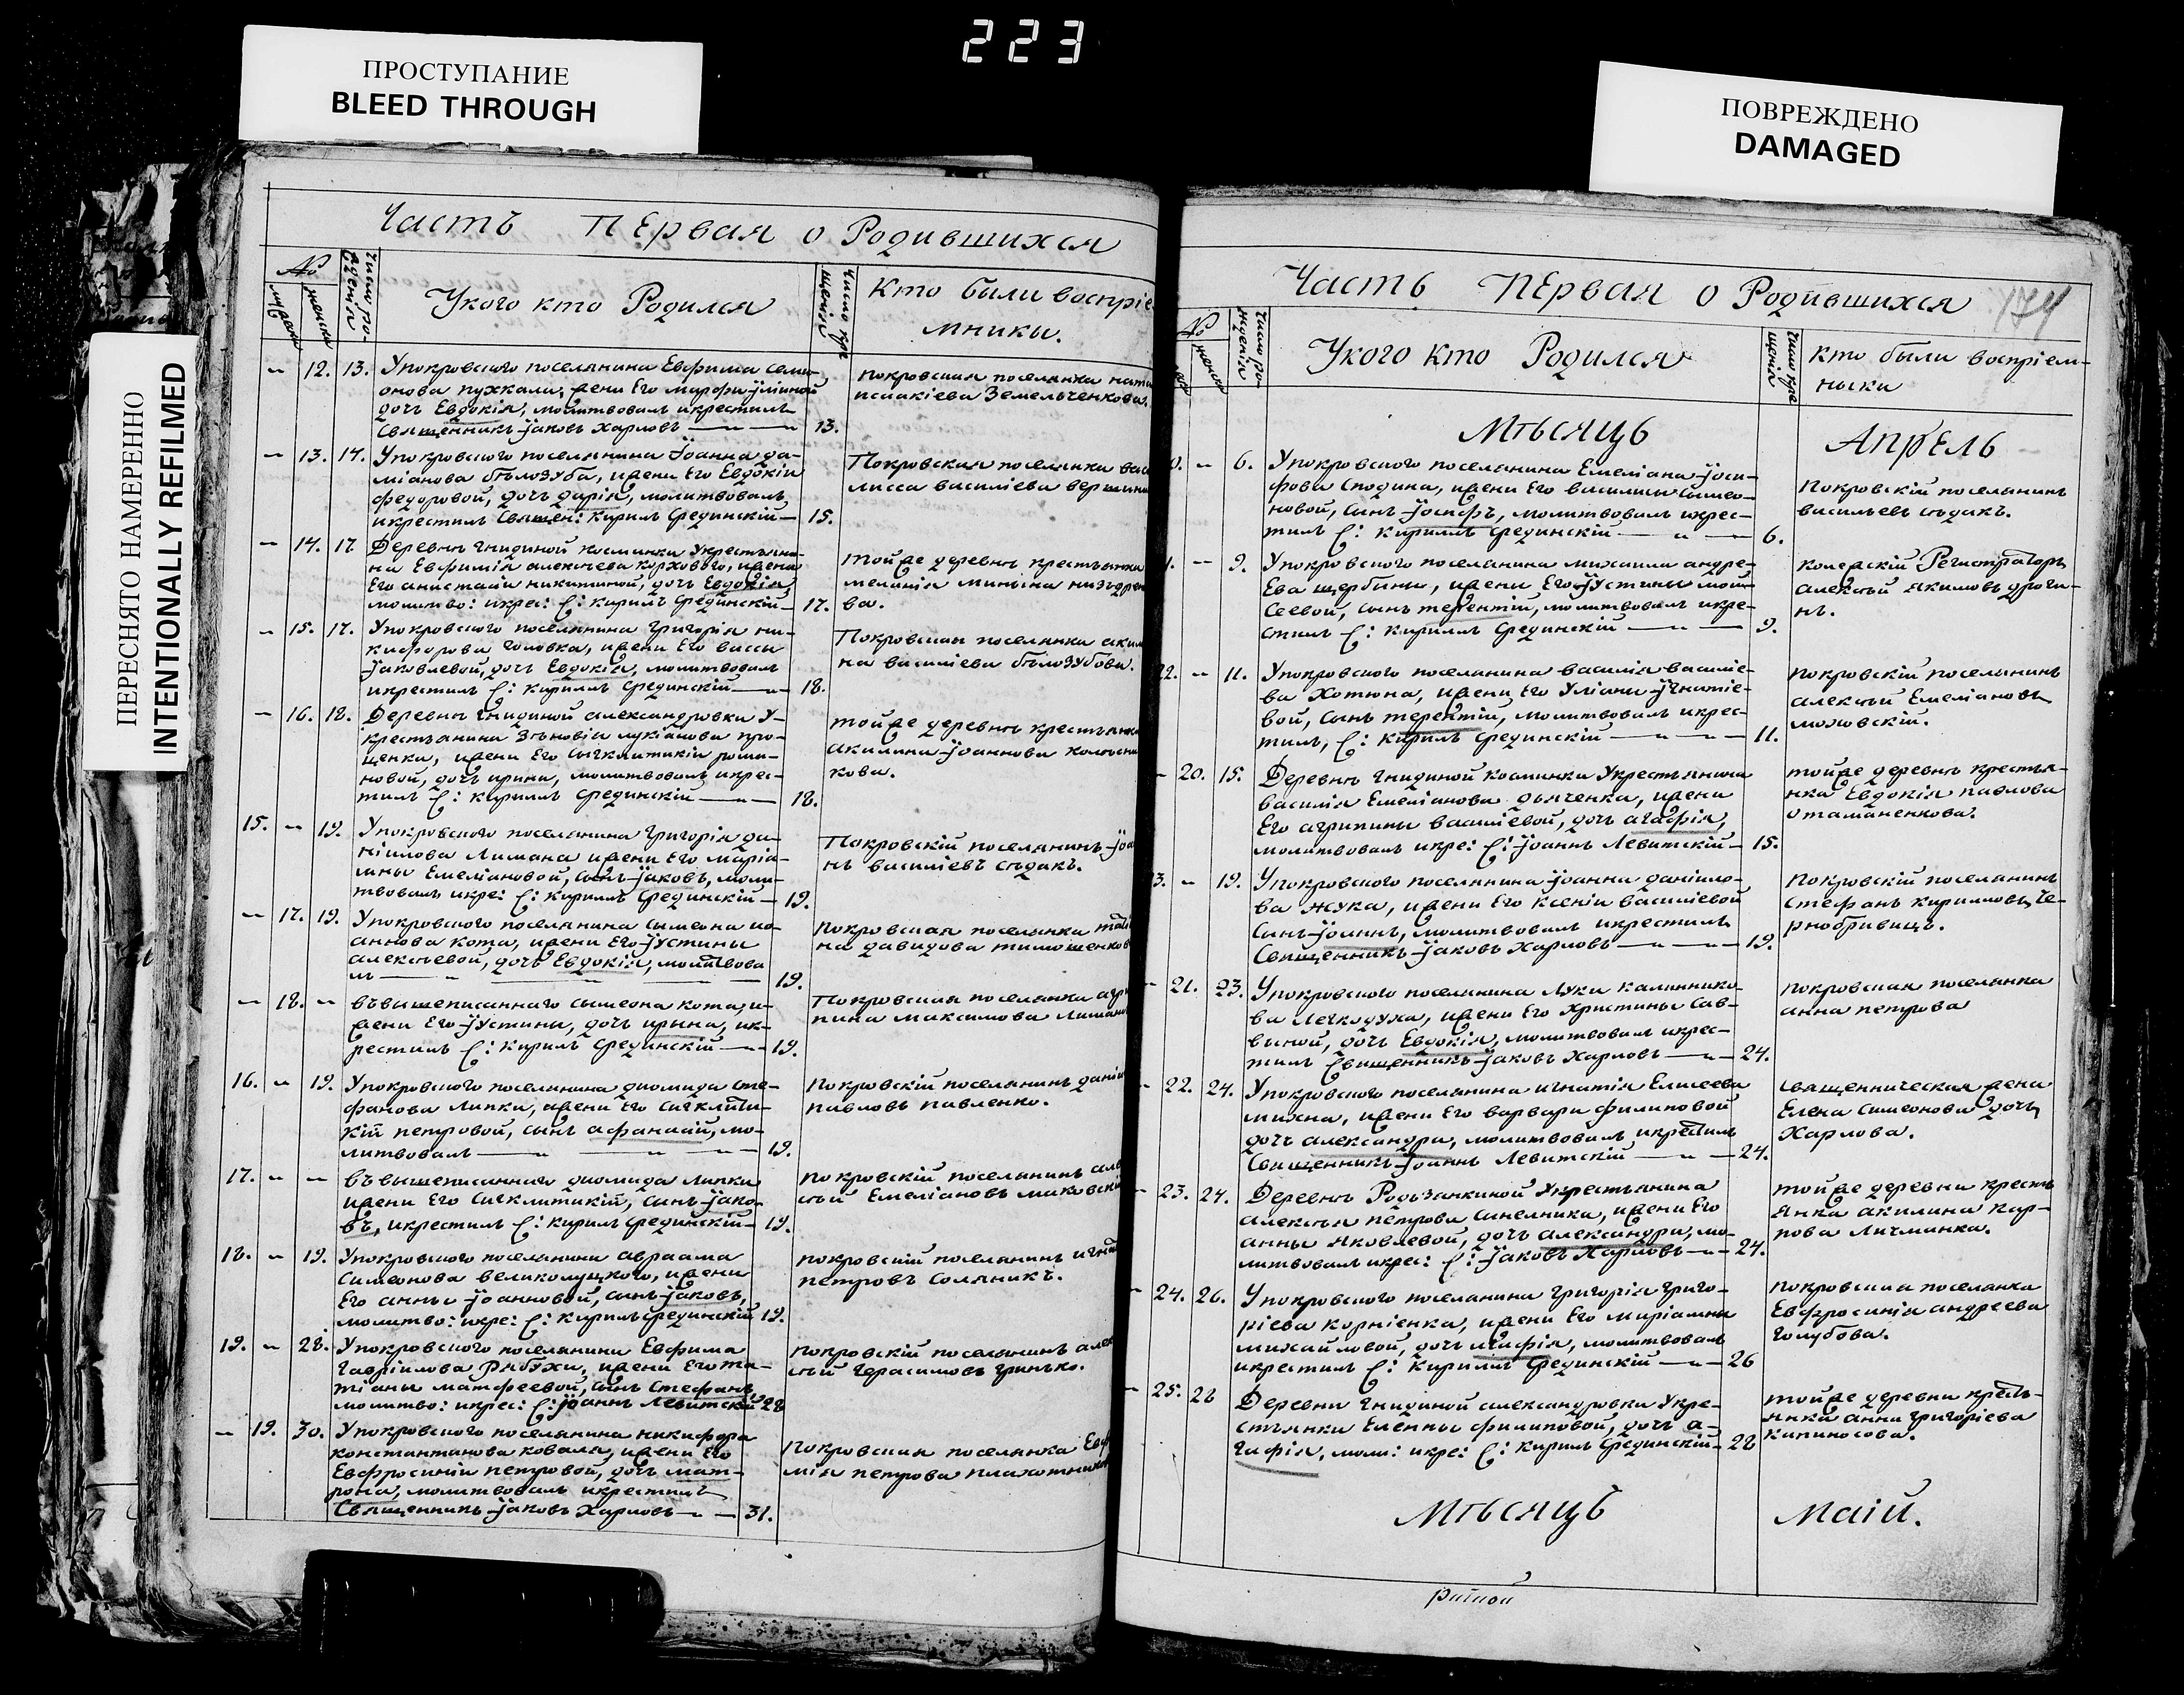 223
ПРОСТУПАНИЕ
BLEED THROUGH
ПОВРЕЖДЕНО
DAMAGED
ПЕРЕСНЯТО НАМЕРЕННО
INTENTIONALLY REFILMED
Часть Первая о Родившихся
№
Укого кто Родился
Кто были воспріе
мники.
12. 13. Упокровского поселянина Евфима семи
онова пужкали, жени Его марфи
дочь Евдокія, молитвовалъ икрестилъ
Священникъ Іаковъ Харловъ 13.
покровская поселянка
Земельченкова.
13. 14. Упокровского поселянина Іоанна да-
міанова бѣлозуба, ижени Его Евдокіи
федоровой, дочь дарія, молитвовалъ
икрестилъ Священ: Кирилъ Срединскій 15.
Покровская поселянка васи
лисса василіева
14. 17 Деревнѣ гнидиной косминки Укрестьяни-
на Евфимія алексѣева коржового, ижени
Его анастасіи никитиной, дочь Евдокія,
молитво: икрес: С: Кирилъ Срединскій 17.
тойже деревнѣ крестьянка
меланія
ва.
15. 17. Упокровского поселянина григорія ни-
кифорова головка, ижени Его вассы
Іаковлевой, дочь Евдокія, молитвовалъ
икрестилъ С: Кириллъ Срединскій 18.
Покровская поселянка акили
на василіева бѣлозубова.
16. 18. Деревнѣ гнидиной александровки У-
крестьянина Зѣновія лукіанова про-
ценка, ижени Его сигклитикіи рома-
новой, дочь ирина, молитвовалъ икрес-
тилъ С: Кириллъ Срединскій 18.
тойже деревнѣ крестьянка
акилина Іоаннова
кова.
15. 19. Упокровского поселянина григорія да-
ніилова Лимана ижени Его маріа-
мны Емеліановой, сынъ Іаковъ, моли-
твовалъ икре: С: Кириллъ Срединскій 19.
Покровскій поселянинъ Іоа
нъ василіевъ сѣдакъ.
17. 19. Упокровского поселянина Симеона ио-
аннова кота, ижени Его Іустины
алексѣевой, дочь Евдокія, молитвова
лъ 19.
покровская поселянка татія
на давидова тимошенков
18. въвышеписаннаго симеона кота, и-
жени Его Іустины, дочь ирина, ик-
рестилъ С: Кирилъ Срединскій 19.
Покровская поселянка агри
пина максимова Лиман
16. 19. Упокровского поселянина диомида сте-
фанова Липки, ижени Его сигклити-
кіи петровой, сынъ афанасій, мо-
литвовалъ 19.
покровскій поселянинъ даніи
павловъ павленко.
17. въвышеписаннаго диомида липки
ижени Его сигклитикіи, сынъ Іако-
въ, икрестилъ С: Кирилъ Срединскій 19.
покровскій поселянинъ
Емеліановъ маковскі
18. 19. Упокровского поселянина авраама
Симеонова великолуцкого, ижени
Его анны Іоанновой, сынъ Іаковъ,
молитво: икре: С: Кирилъ Срединскій 19.
покровскій поселянинъ игна
петровъ Соляникъ.
19. 28. Упокровского поселянина Евфима
гавріилова Рябухи, ижени Его та-
тіаны матфеевой, сынъ Стефанъ,
молитво: икрес: С: Іоаннъ Левитскій 28
покровскій поселянинъ алек
сѣй герасимовъ гринько.
19. 30. Упокровского поселянина никифора
константинова коваля, ижени Его
Евфросиніи петровой, дочь мат-
рона, молитвовалъ икрестилъ
Священникъ Іаковъ Харловъ 31.
покровская поселянка Евф
мія петрова плахотник
Часть Первая о Родившихся
174
№
Укого кто Родился
Кто были воспріем-
ники
Мѣсяцъ Апрель
6. Упокровского поселянина Емеліана Іоси-
фова Сподина, ижени Его василисы Симео-
новой, сынъ Іосифъ, молитвовалъ икрес-
тилъ С: Кириллъ Срединскій 6.
Покровскій поселянинъ
васильевъ сѣдакъ.
9. Упокровского поселянина михаила андре-
Ева щербины, ижени Его Іустины мой-
сеевой, сынъ терентій, молитвовалъ икре-
стилъ С: Кириллъ Срединскій 9.
Регистраторъ
алексѣй якимовъ
нъ.
22. 11. Упокровского поселянина василія василіе-
ва Хотюна, ижени Его Уліаны Ігнатіе-
вой, сынъ терентій, молитвовалъ икрес-
тилъ, С: Кирилъ Срединскій 11.
покровскій поселянинъ
алексѣй Емеліановъ
маковскій.
20. 15. Деревнѣ гнидиной косминки Укрестьянина
василія Емеліанова дьяченка, ижени
Его агрипины василіевой, дочь агафія,
молитвовалъ икре: С: Іоаннъ Левитскій 15.
тойже деревнѣ крестья-
нка Евдокія павлова
отаманенкова.
19. Упокровского поселянина Іоанна даніило-
ва Жука, ижени Его Ксеніи василіевой
Сынъ Іоаннъ, молитвовалъ икрестилъ
Священникъ Іаковъ Харловъ 19.
покровскій поселянинъ
Стефанъ кириловъ Че-
рнобривецъ.
21. 23. Упокровского поселянина Луки калинико-
ва Легкодуха, ижени Его Христины Сав-
виной, дочь Евдокія, молитвовалъ икрес-
тилъ Священникъ Іаковъ Харловъ 24.
покровская поселянка
анна петрова
22. 24. Упокровского поселянина игнатія Елисеева
михна, ижени Его варвары филиповой
дочь александра, молитвовалъ икрестилъ
Священникъ Іоаннъ Левитскій 24.
священническая жена
Елена Симеонова дочь
Харлова.
23. 24. Деревнѣ Родзянкиной Укрестьянина
алексѣя петрова Синелника, ижени Его
анны яковлевой, дочь александра, мо-
литвовалъ икрес: С: Іаковъ Харловъ 24.
тойже деревни кресть
янка акилина кар-
пова Личманка.
24. 26. Упокровского поселянина григорія григо-
ріева корніенка, ижени Его маріамны
михайловой, дочь агафія, молитвовалъ
икрестилъ С: Кириллъ Срединскій 26
покровская поселянка
Евфросинія андреева
голубова.
25. 28 Деревни гнидиной александровки Укре-
стьянки Еленны филиповой, дочь а-
гафія, моли: икре: С: Кирилъ Срединскій 28
тойже деревни кресть-
янка анна григоріева
капиносова.
Мѣсяцъ маій.